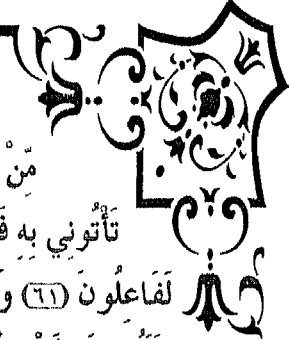 مِّنْ
تَأْتُونِي بِهِ
لَفَاعِلُونَ (٦١)